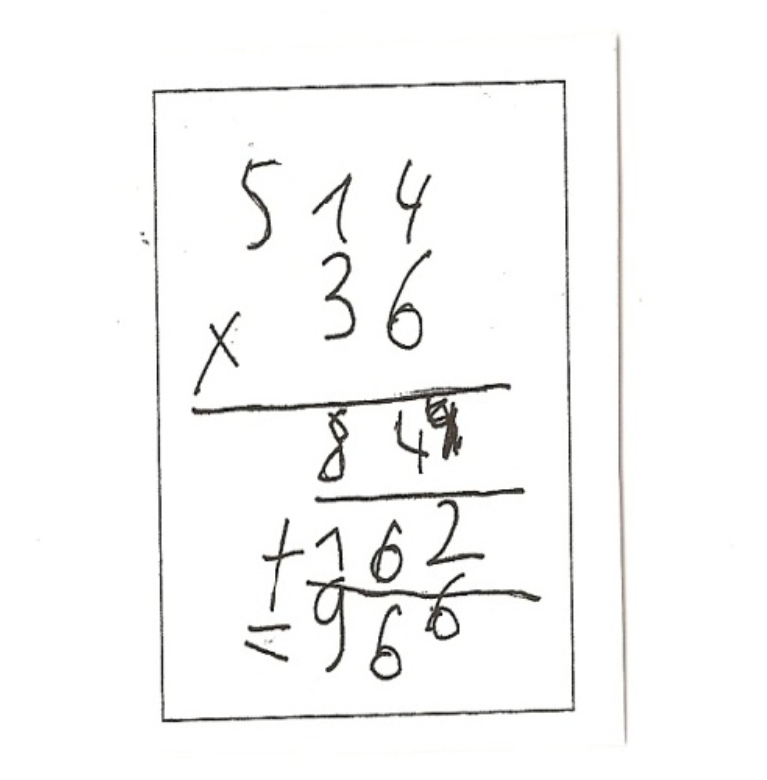 514
36
x
84
+162
=966